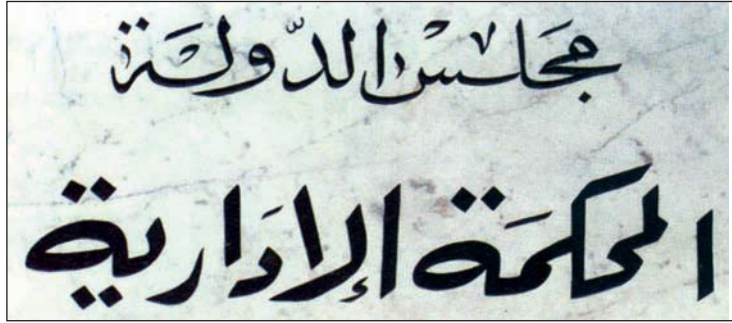 مجلس الدّولة
المحكمة الإدارية